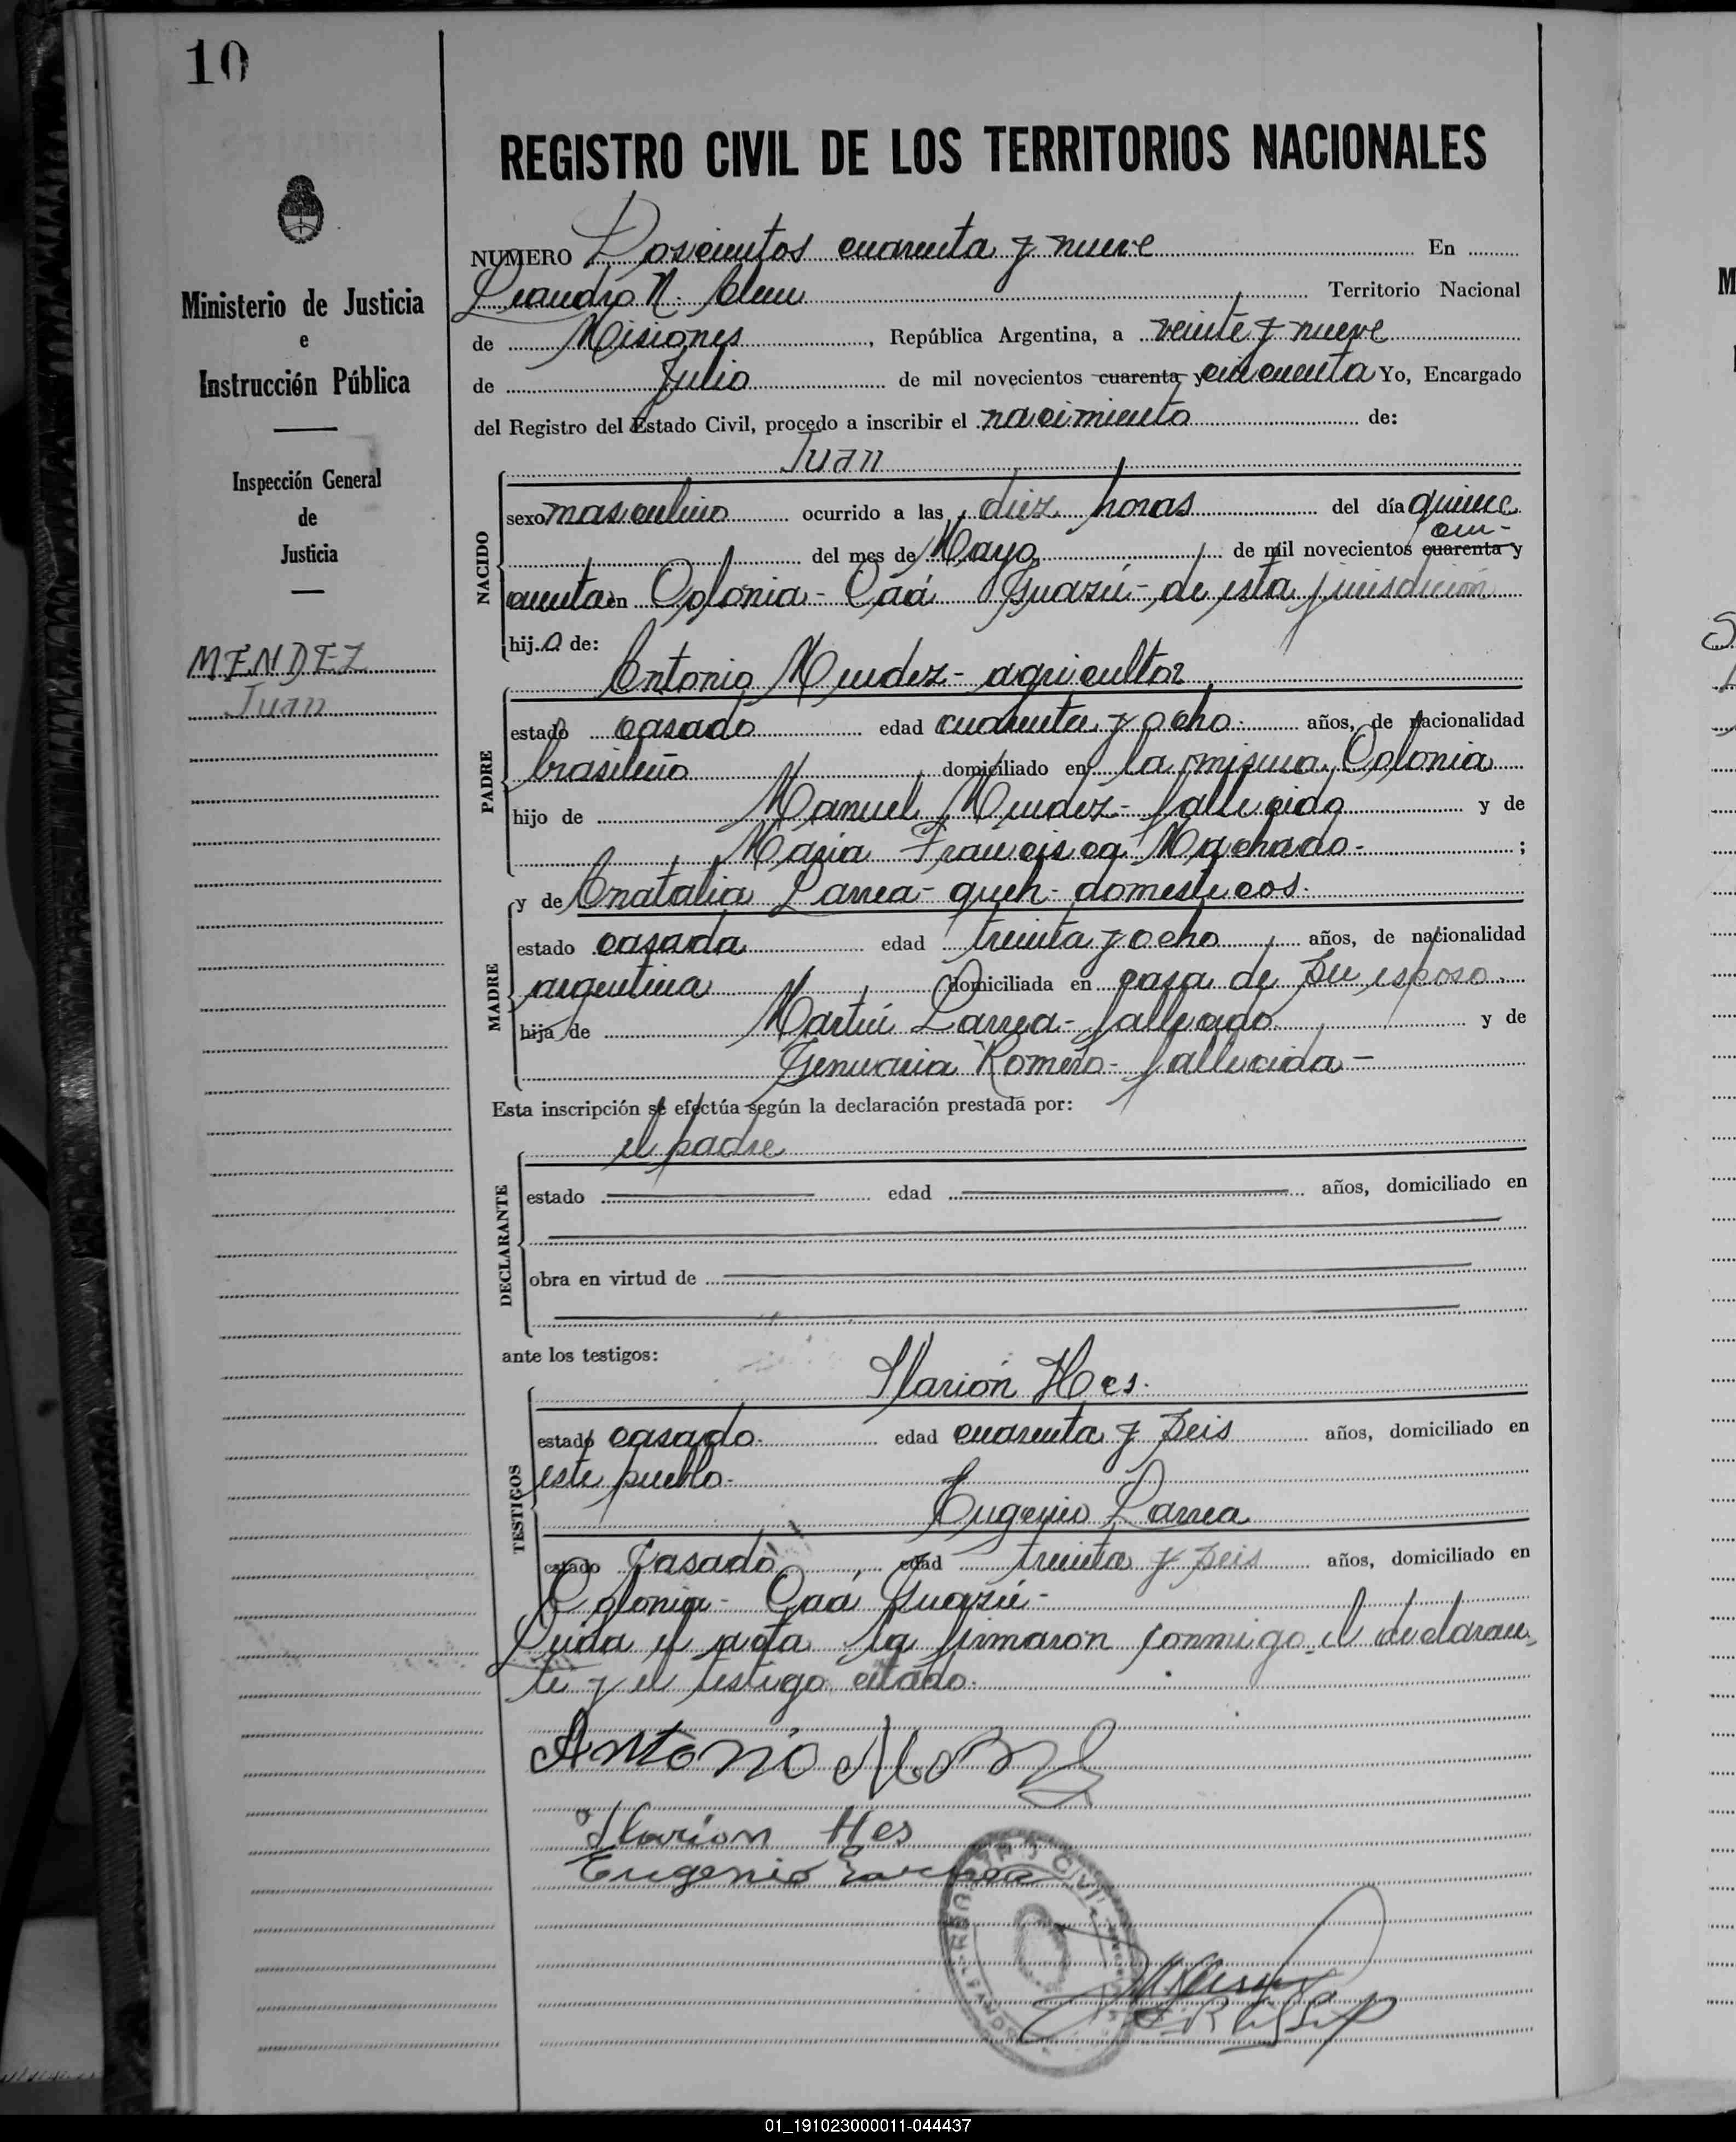 10
REGISTRO CIVIL DE LOS TERRITORIOS NACIONALES
Ministerio de Justicia
e
Instrucción Pública
Inspección General
de
Justicia
MENDEZ
Juan
NUMERO Doscientos cuarenta y nueve En
Leandro N. Alem Territorio Nacional
de Misiones, República Argentina, a veinte y nueve
de Julio de mil novecientos cuarenta y cincuenta Yo, Encargado
del Registro del Estado Civil, procedo a inscribir el nacimiento de:
Juan
NACIDO
sexo masculino ocurrido a las diez horas del día quince
del mes de Mayo de mil novecientos cuarenta y cin-
cuenta en Colonia - Caá Guazú - de esta jurisdicion
hijo de:
Antonio Mendez - agricultor
PADRE
estado casado edad cuarenta y ocho años, de nacionalidad
brasileño domiciliado en la misma Colonia
hijo de Manuel Mendez - fallecido y de
Maria Francisca Machado - ;
y de Anatalia Larrea - queh - domesticos.
MADRE
estado casada edad treinta y ocho años, de nacionalidad
argentina domiciliada en casa de su esposo
hija de Martin Larrea - fallecido y de
Romero - fallecida -
Esta inscripción se efectúa según la declaración prestada por:
el padre
DECLARANTE
estado edad años, domiciliado en
obra en virtud de
ante los testigos:
Ilarión Hes.
TESTIGOS
estado casado. edad cuarenta y seis años, domiciliado en
este pueblo.
Eugenio Larrea
estado casado edad treinta y seis años, domiciliado en
Colonia - Caá Guazú -
Leida el acta la firmaron conmigo el declaran-
te y el testigo citado.
Antonio
Ilarion Hes
Eugenio Larrea
REGISTRO CIVIL
01_191023000011-044437